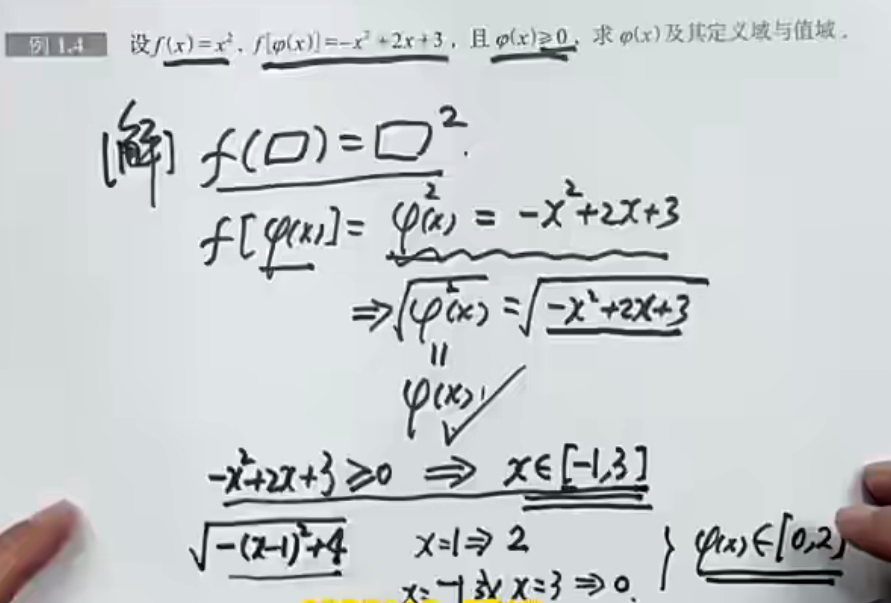 例 1.4 设f(x)=x², f[φ(x)]=-x²+2x+3, 且φ(x)≥0, 求φ(x)及其定义域与值域.
[解] f(□)=□².
f[φ(x)]=φ²(x)=-x²+2x+3
⇒√φ²(x)=√-x²+2x+3
=
φ(x) ✓
-x²+2x+3≥0 ⇒ x∈[-1,3]
√-(x-1)²+4 x=1⇒2 } φ(x)∈[0,2]
x=-1或x=3⇒0.